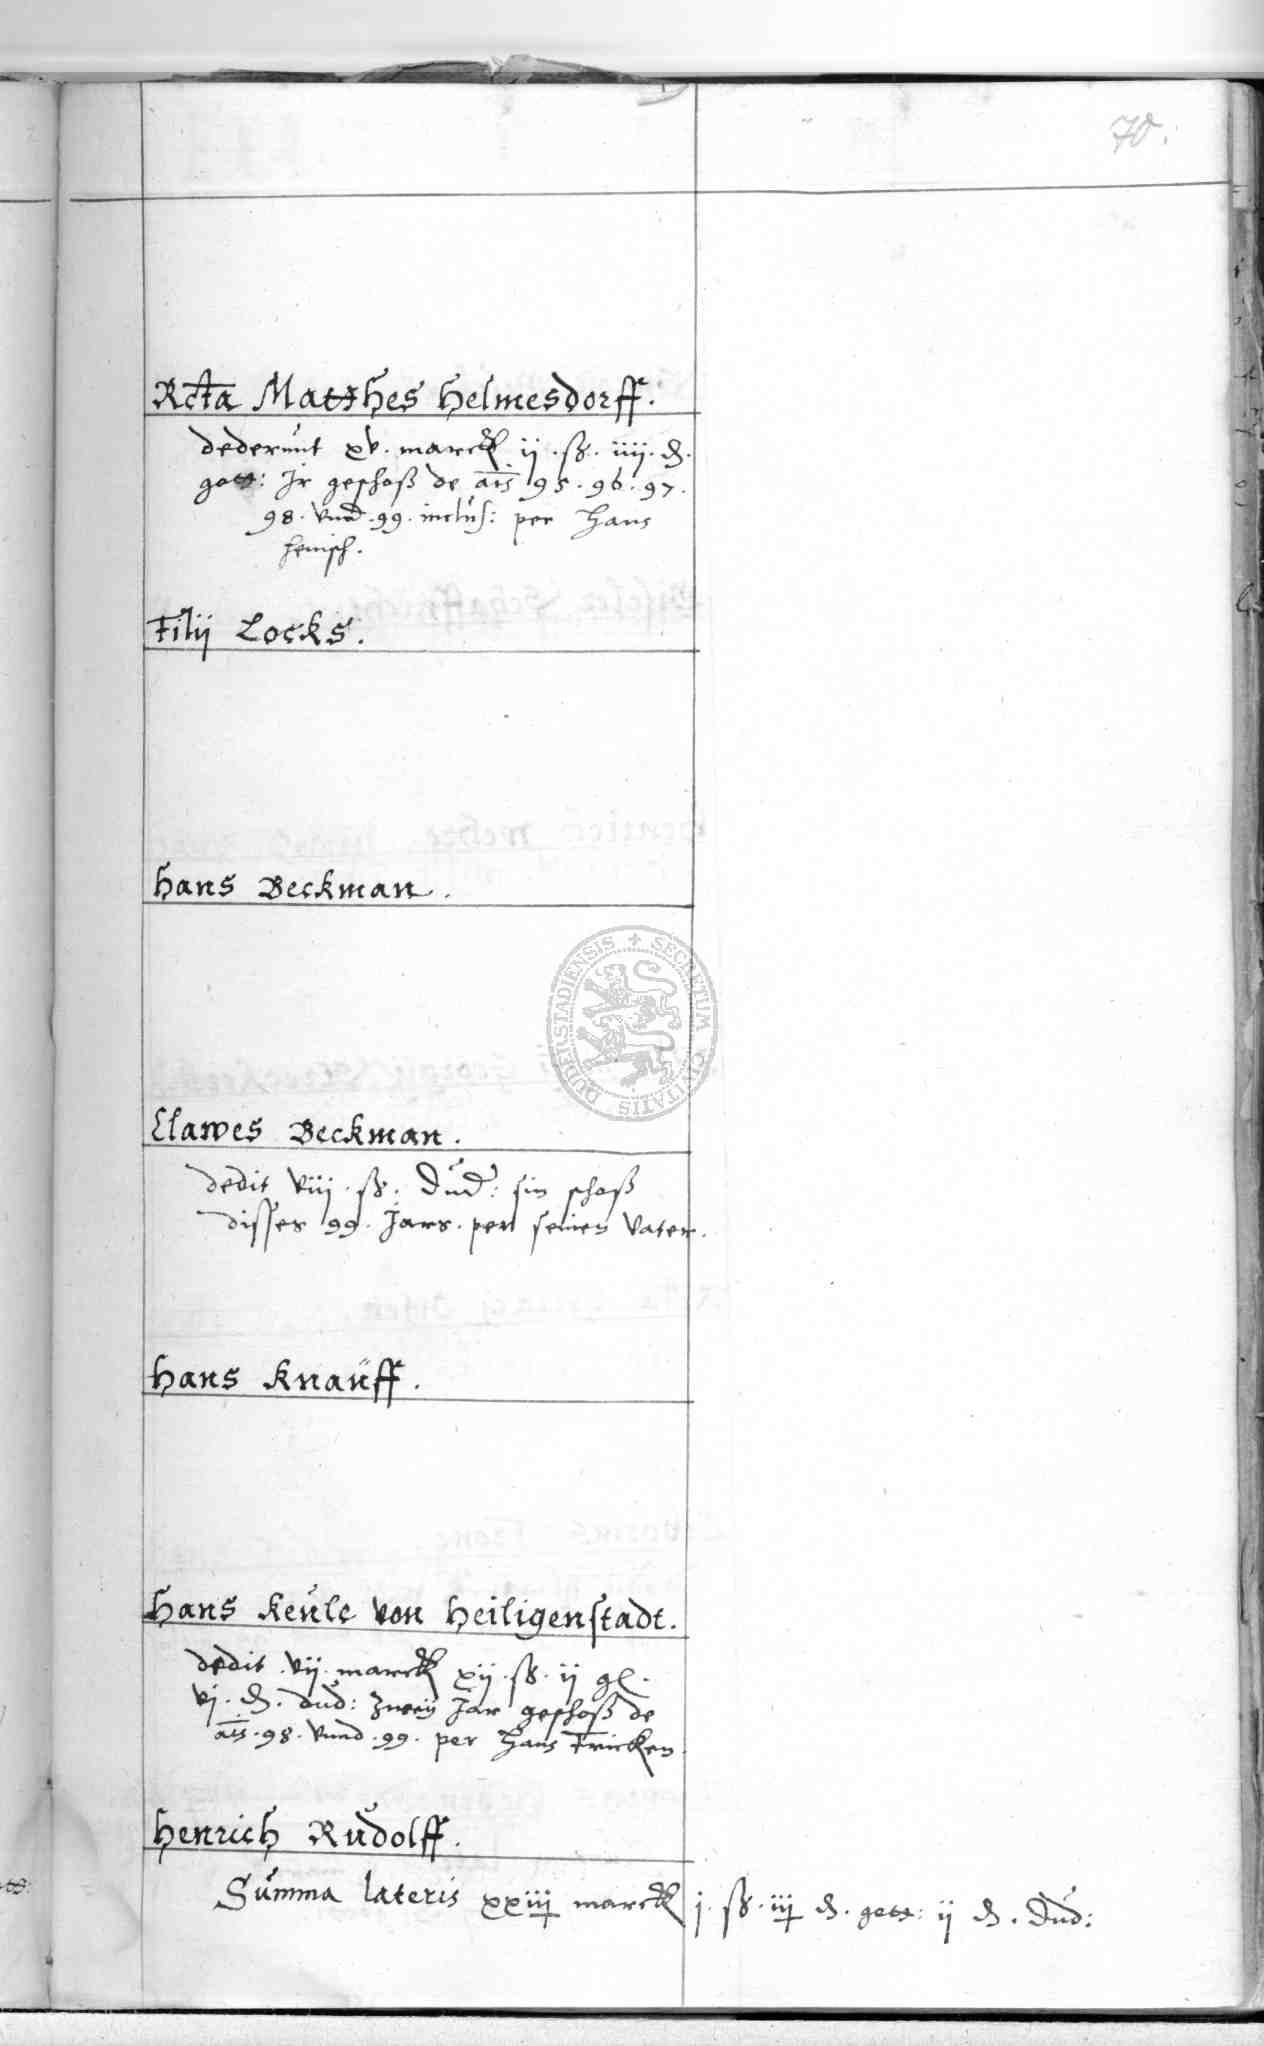 70.
Rcta Matthes Helmesdorff.
dederunt xv. marck ij. ß. iiij. d.
gott: Jr geschoß de ais 95. 96. 97.
98. vnd. 99. inclus: per Hans
Filij Locks.
Hans Beckman.
SECRETUM CIVITATIS DUDERSTADIENSIS
Clawes Beckman.
dedit viij. ß. Dud: sin schoß
disses 99. Jars. per seinen Vater.
Hans Knauff.
Hans Keule von Heiligenstadt.
dedit. vij. marck xij. ß. ij gl.
vj. d. dud: zweij Jar geschoß de
ais. 98. vnnd. 99. per Hans Fricken
Henrich Rudolff.
Summa lateris xxiij marck j. ß. iij d. gott: ij d. Dud: